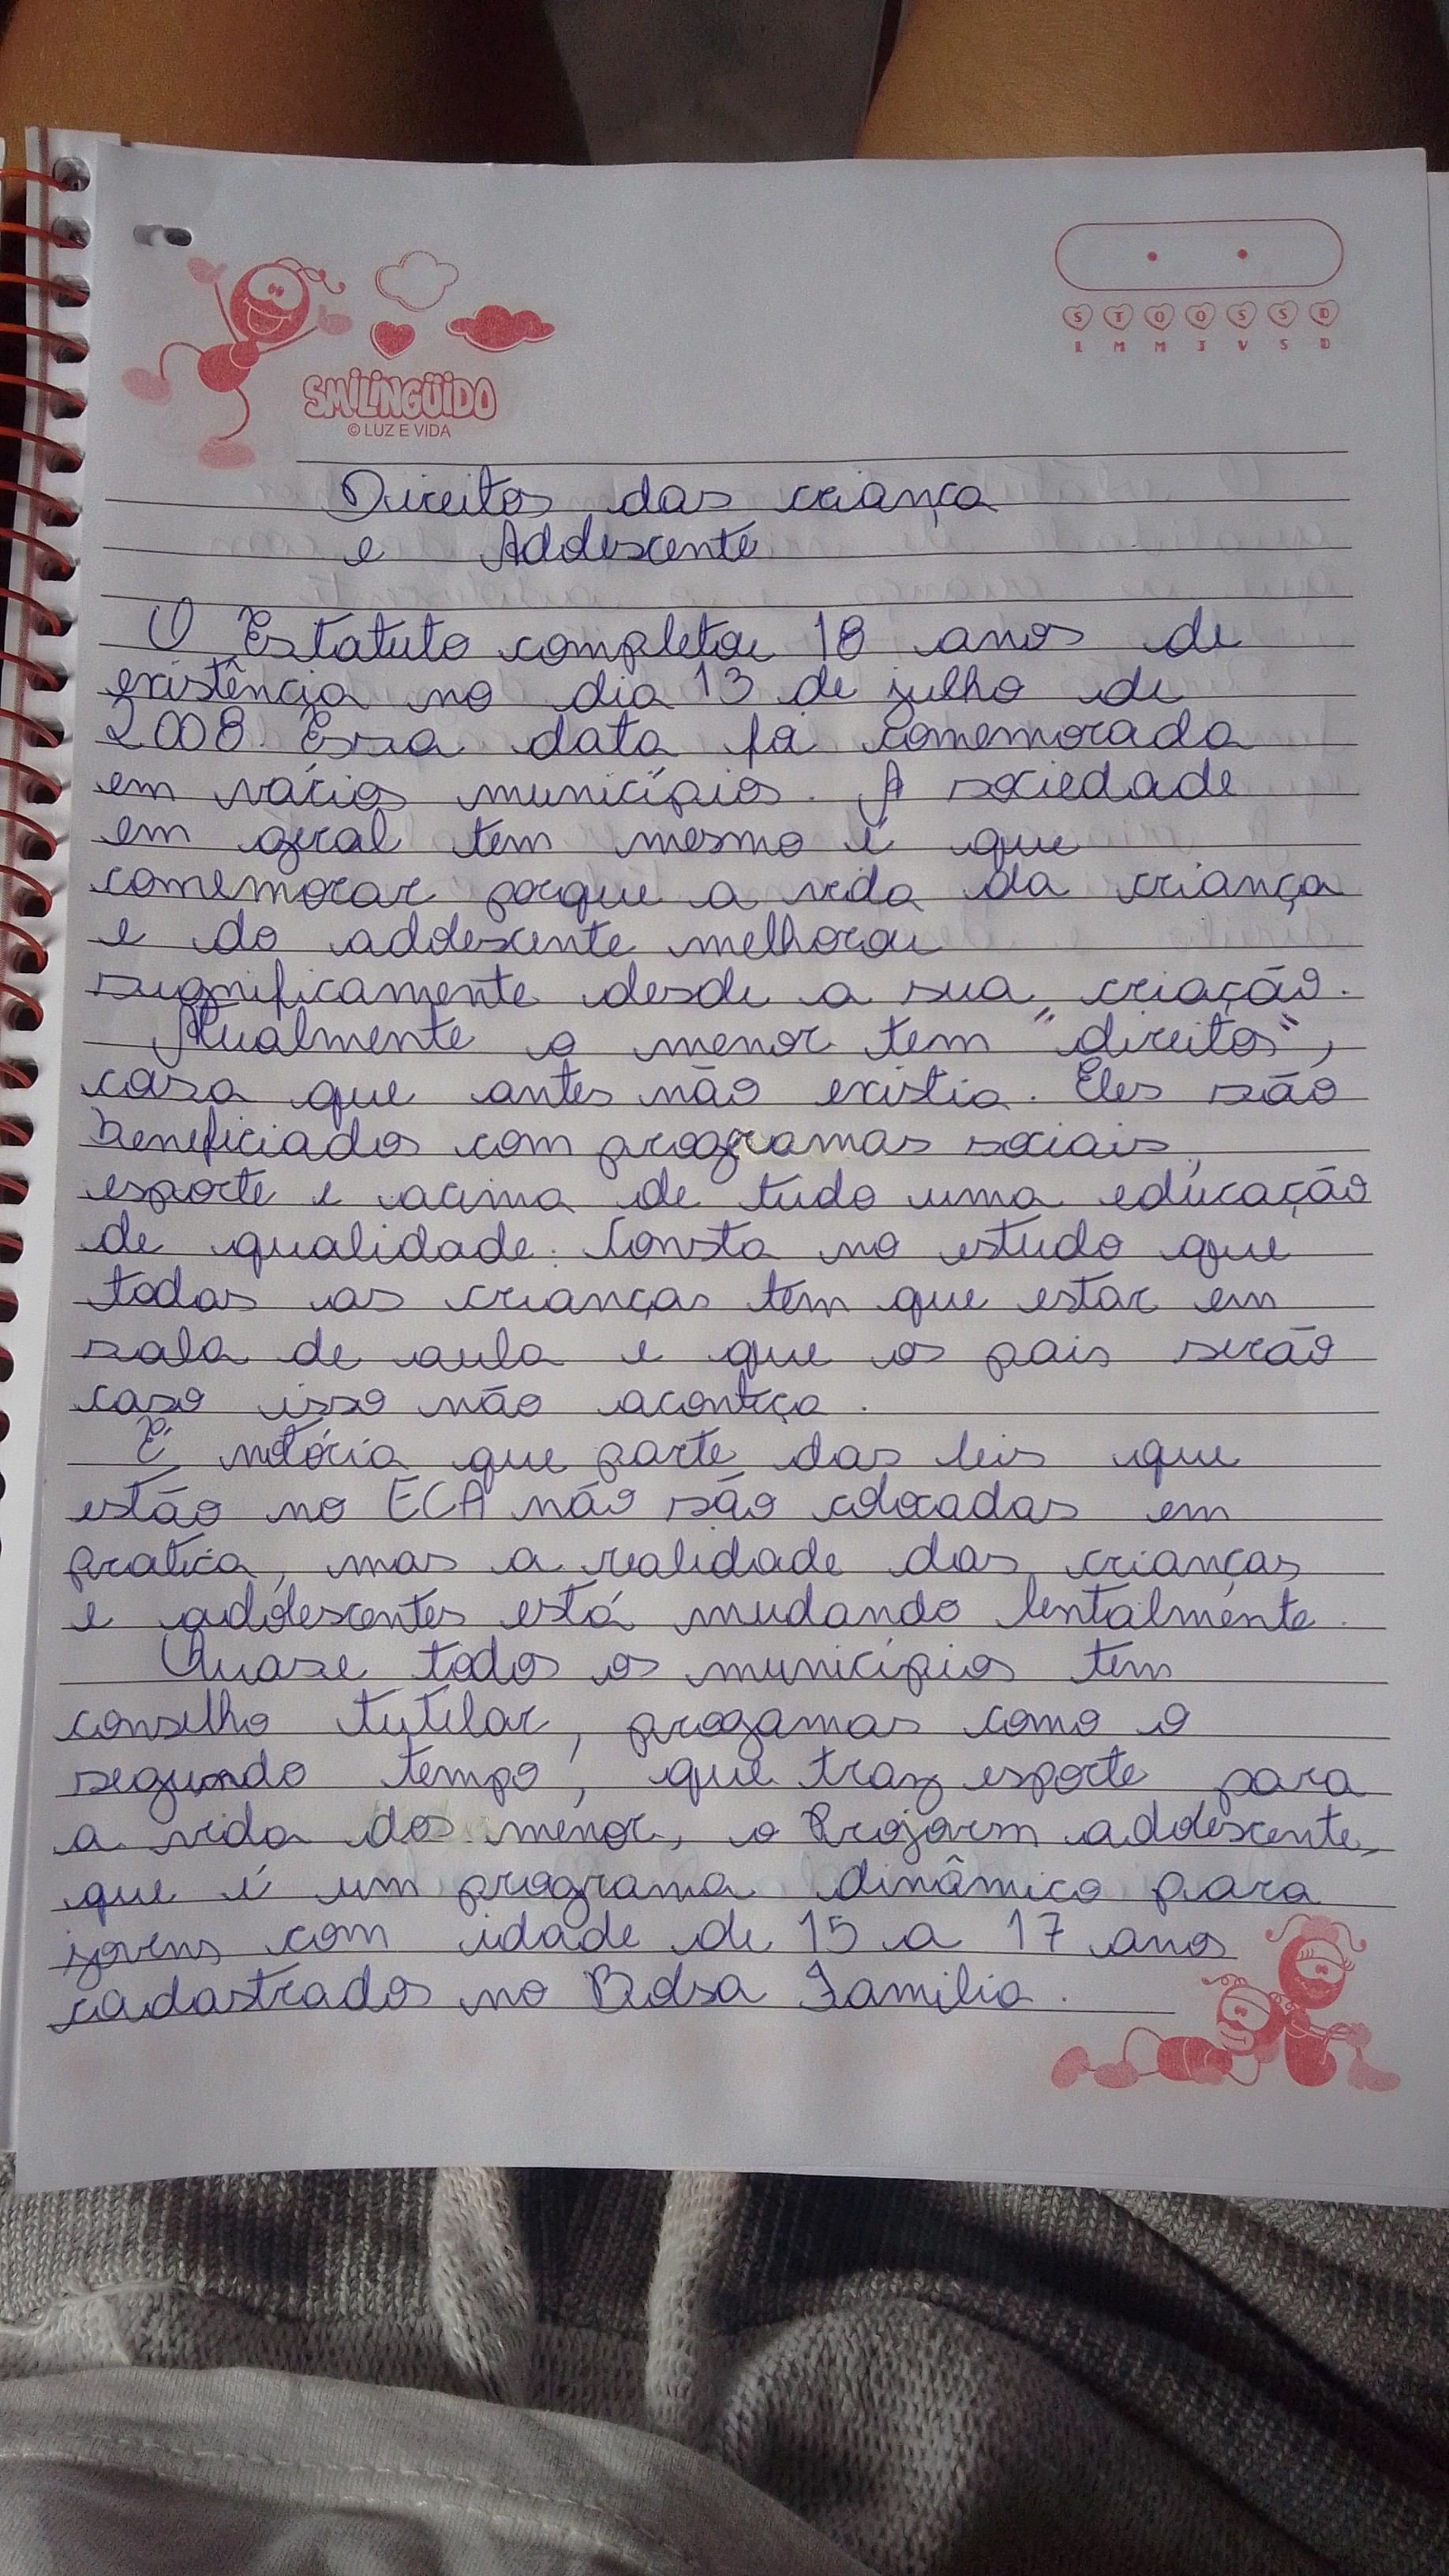 S T Q Q S S D
L M M J V S D
SMILINGÜIDO
© LUZ E VIDA
Direitos das criança
e Adolescente
O Estatuto completou 18 anos de
existência no dia 13 de julho de
2008. Essa data foi comemorada
em vários municípios. A sociedade
em geral tem mesmo é que
comemorar porque a vida da criança
e do adolescente melhorou
significamente desde a sua criação.
Atualmente o menor tem "direitos",
coisa que antes não existia. Eles são
beneficiados com programas sociais,
esporte e acima de tudo uma educação
de qualidade. Consta no estudo que
todas as crianças tem que estar em
sala de aula e que os pais serão
caso isso não aconteça.
É notória que parte das leis que
estão no ECA não são colocadas em
pratica, mas a realidade das crianças
e adolescentes está mudando lentalmente.
Quase todos os municípios tem
conselho tutelar, progamas como o
segundo tempo, que traz esporte para
a vida dos menor, o Projovem adolescente,
que é um programa dinâmico para
jovens com idade de 15 a 17 anos
cadastrados no Bolsa Familia.